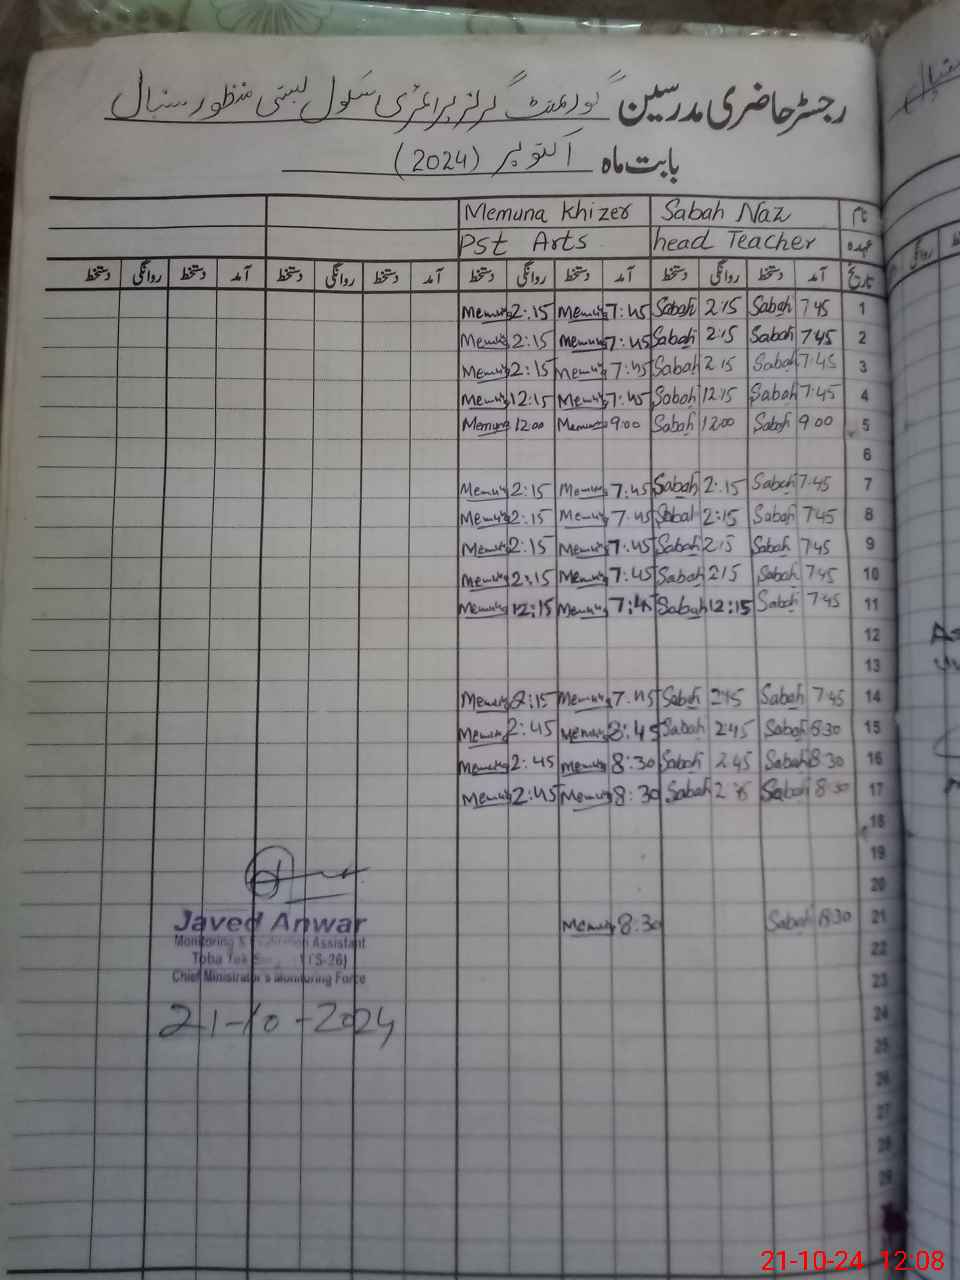 رجسٹر حاضری مدرسین گورنمنٹ گرلز پرائمری سکول بستی منظور سیال
بابت ماہ اکتوبر (2024)
نام Sabah Naz Memuna Khizer
عہدہ head Teacher Pst Arts
تاریخ آمد دستخط روانگی دستخط آمد دستخط روانگی دستخط آمد دستخط روانگی دستخط آمد دستخط روانگی دستخط
1 7 45 Sabah 2:15 Sabah 7:45 Memuna 2:15 Memuna
2 7 45 Sabah 2:15 Sabah 7:45 Memuna 2:15 Memuna
3 7:45 Sabah 2 15 Sabah 7:45 Memuna 2:15 Memuna
4 7:45 Sabah 12:15 Sabah 7:45 Memuna 12:15 Memuna
5 9 00 Sabah 12 00 Sabah 9:00 Memuna 12 00 Memuna
6
7 7:45 Sabah 2:15 Sabah 7:45 Memuna 2:15 Memuna
8 7 45 Sabah 2:15 Sabah 7:45 Memuna 2:15 Memuna
9 7 45 Sabah 2 15 Sabah 7:45 Memuna 2:15 Memuna
10 7 45 Sabah 2 15 Sabah 7:45 Memuna 2:15 Memuna
11 7 45 Sabah 12:15 Sabah Memuna 12:15 Memuna
12
13
14 7 45 Sabah Sabah 7:45 Memuna 2:15 Memuna
15 8 30 Sabah 2:45 Sabah 8:45 Memuna 2:45 Memuna
16 8 30 Sabah 2 45 Sabah 8:30 Memuna 2:45 Memuna
17 8 30 Sabah Sabah 8:30 Memuna 2:45 Memuna
18
19
20
21 8:30 Sabah 8:30 Memuna
22
23
24
25
26
27
28
29
Javed Anwar
Monitoring & Assistant
Toba Tek (S-26)
Chief Monitoring Force
21-10-2024
21-10-24 12:08